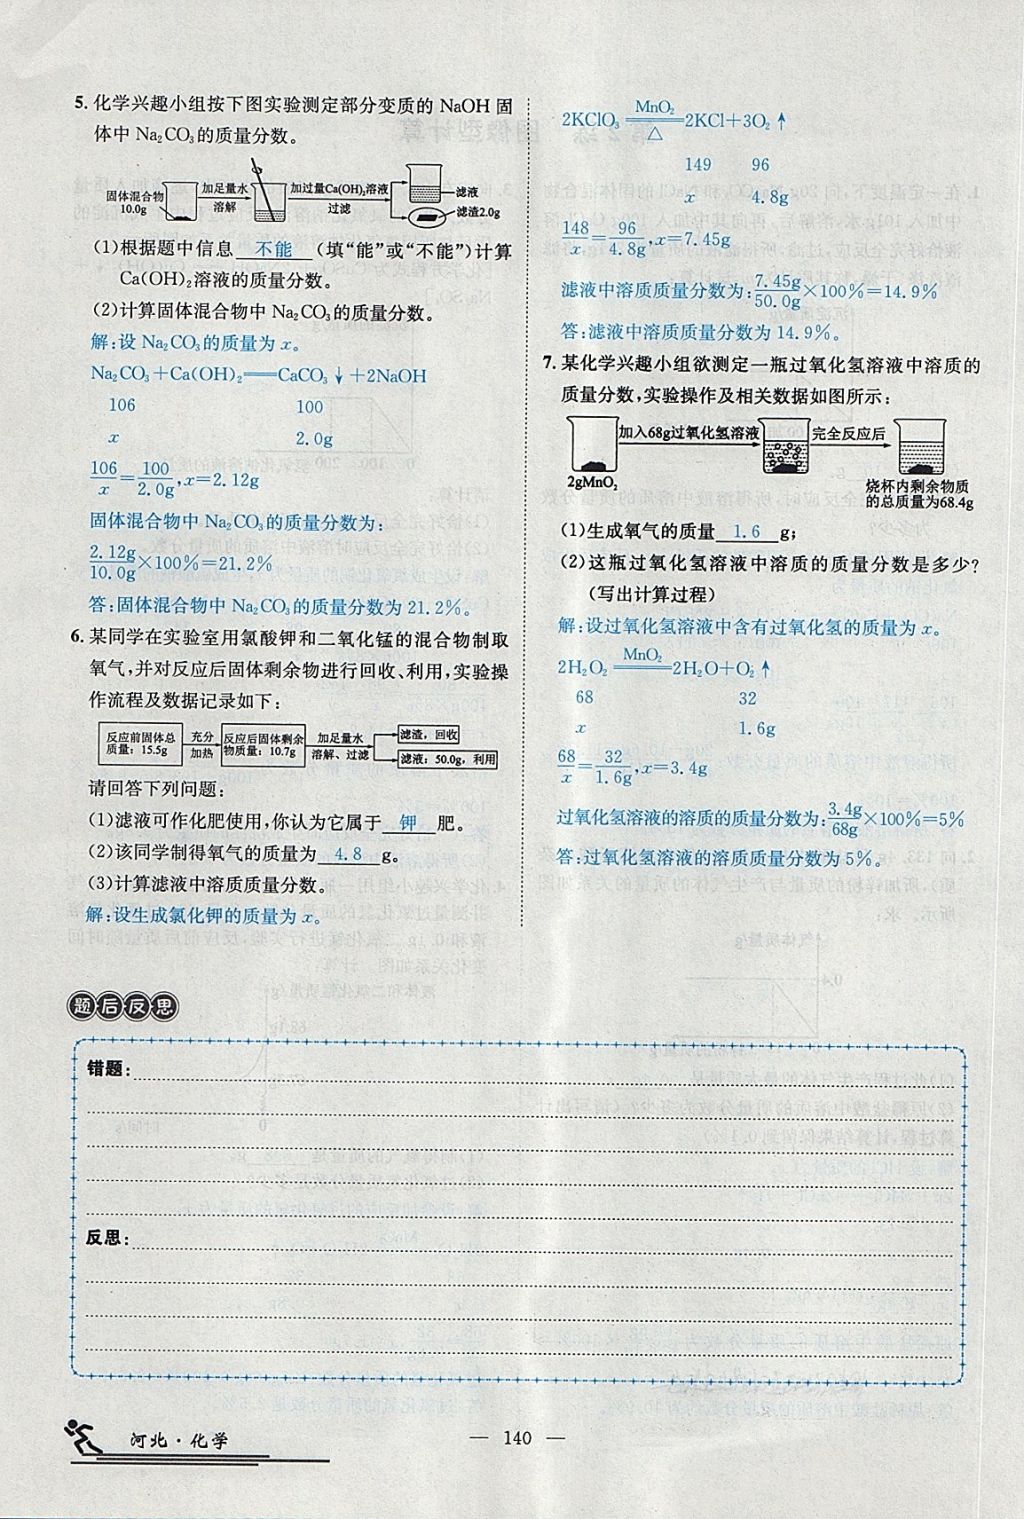 5. 化学兴趣小组按下图实验测定部分变质的 NaOH 固
体中 Na₂CO₃的质量分数。
固体混合物
10.0g
加足量水
溶解
加过量Ca(OH)₂溶液
过滤
滤液
滤渣2.0g
(1)根据题中信息 不能 (填“能”或“不能”)计算
Ca(OH)₂溶液的质量分数。
(2)计算固体混合物中 Na₂CO₃的质量分数。
解:设 Na₂CO₃的质量为 x。
Na₂CO₃+Ca(OH)₂══CaCO₃↓+2NaOH
106 100
x 2.0g
106/x=100/2.0g,x=2.12g
固体混合物中 Na₂CO₃的质量分数为:
2.12g/10.0g×100%=21.2%
答:固体混合物中 Na₂CO₃的质量分数为 21.2%。
6. 某同学在实验室用氯酸钾和二氧化锰的混合物制取
氧气,并对反应后固体剩余物进行回收、利用,实验操
作流程及数据记录如下:
反应前固体总
质量:15.5g
充分
加热
反应后固体剩余
物质量:10.7g
加足量水
溶解、过滤
滤渣,回收
滤液:50.0g,利用
请回答下列问题:
(1)滤液可作化肥使用,你认为它属于 钾 肥。
(2)该同学制得氧气的质量为 4.8 g。
(3)计算滤液中溶质质量分数。
解:设生成氯化钾的质量为 x。
2KClO₃ MnO₂══△ 2KCl+3O₂↑
149 96
x 4.8g
148/x=96/4.8g,x=7.45g
滤液中溶质质量分数为:7.45g/50.0g×100%=14.9%
答:滤液中溶质质量分数为 14.9%。
7. 某化学兴趣小组欲测定一瓶过氧化氢溶液中溶质的
质量分数,实验操作及相关数据如图所示:
2gMnO₂
加入68g过氧化氢溶液
完全反应后
烧杯内剩余物质
的总质量为68.4g
(1)生成氧气的质量 1.6 g;
(2)这瓶过氧化氢溶液中溶质的质量分数是多少?
(写出计算过程)
解:设过氧化氢溶液中含有过氧化氢的质量为 x。
2H₂O₂ MnO₂══ 2H₂O+O₂↑
68 32
x 1.6g
68/x=32/1.6g,x=3.4g
过氧化氢溶液的溶质的质量分数为:3.4g/68g×100%=5%
答:过氧化氢溶液的溶质质量分数为 5%。
题后反思
错题:
反思:
河北·化学
— 140 —